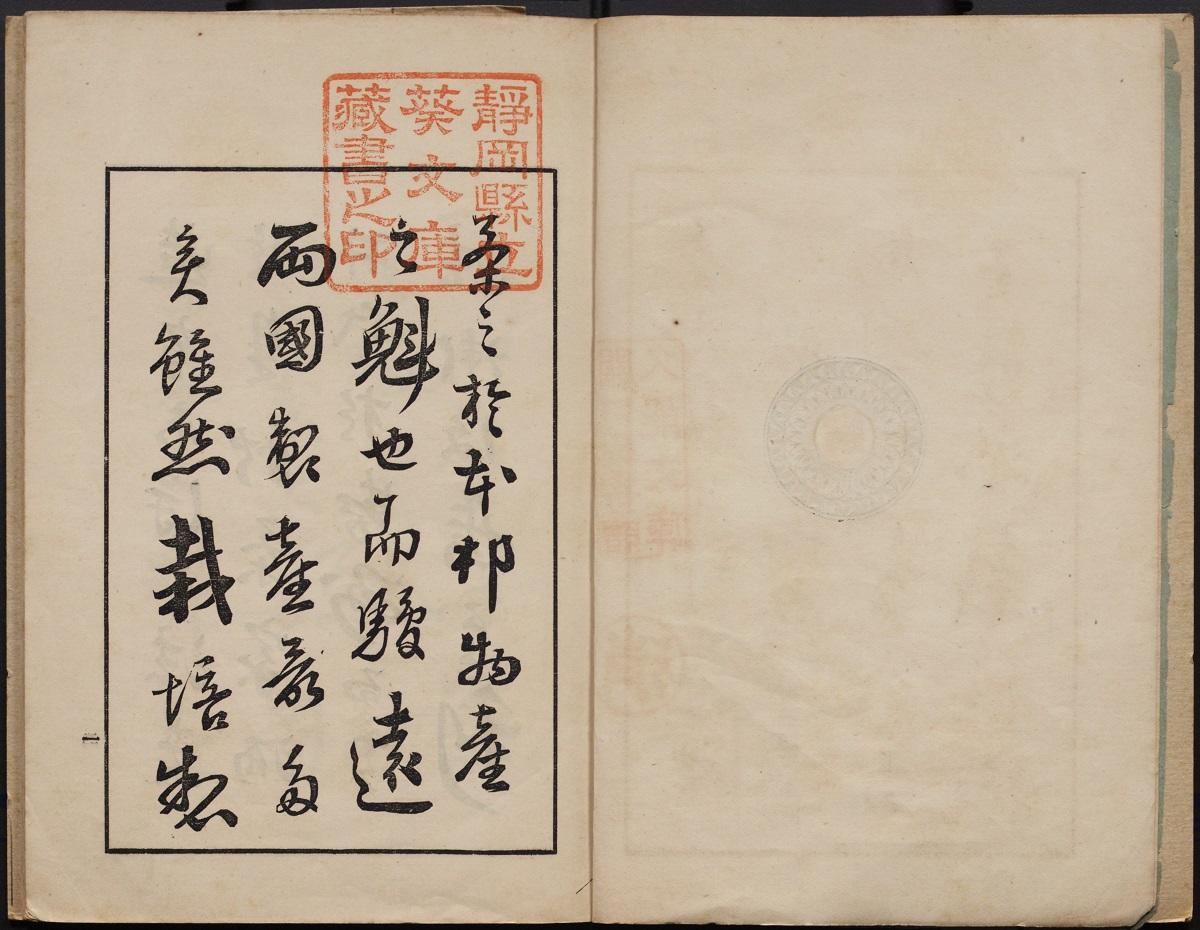 靜岡縣立
葵文庫
藏書之印
茶之於本邦物產
之魁也而駿遠
兩國製產最多
矣雖然栽培製
一